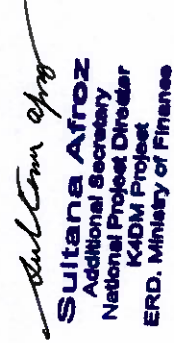 Sultana Afroz
Sultana Afroz
Additional Secretary
National Project Director
K4DM Project
ERD. Ministry of Finance